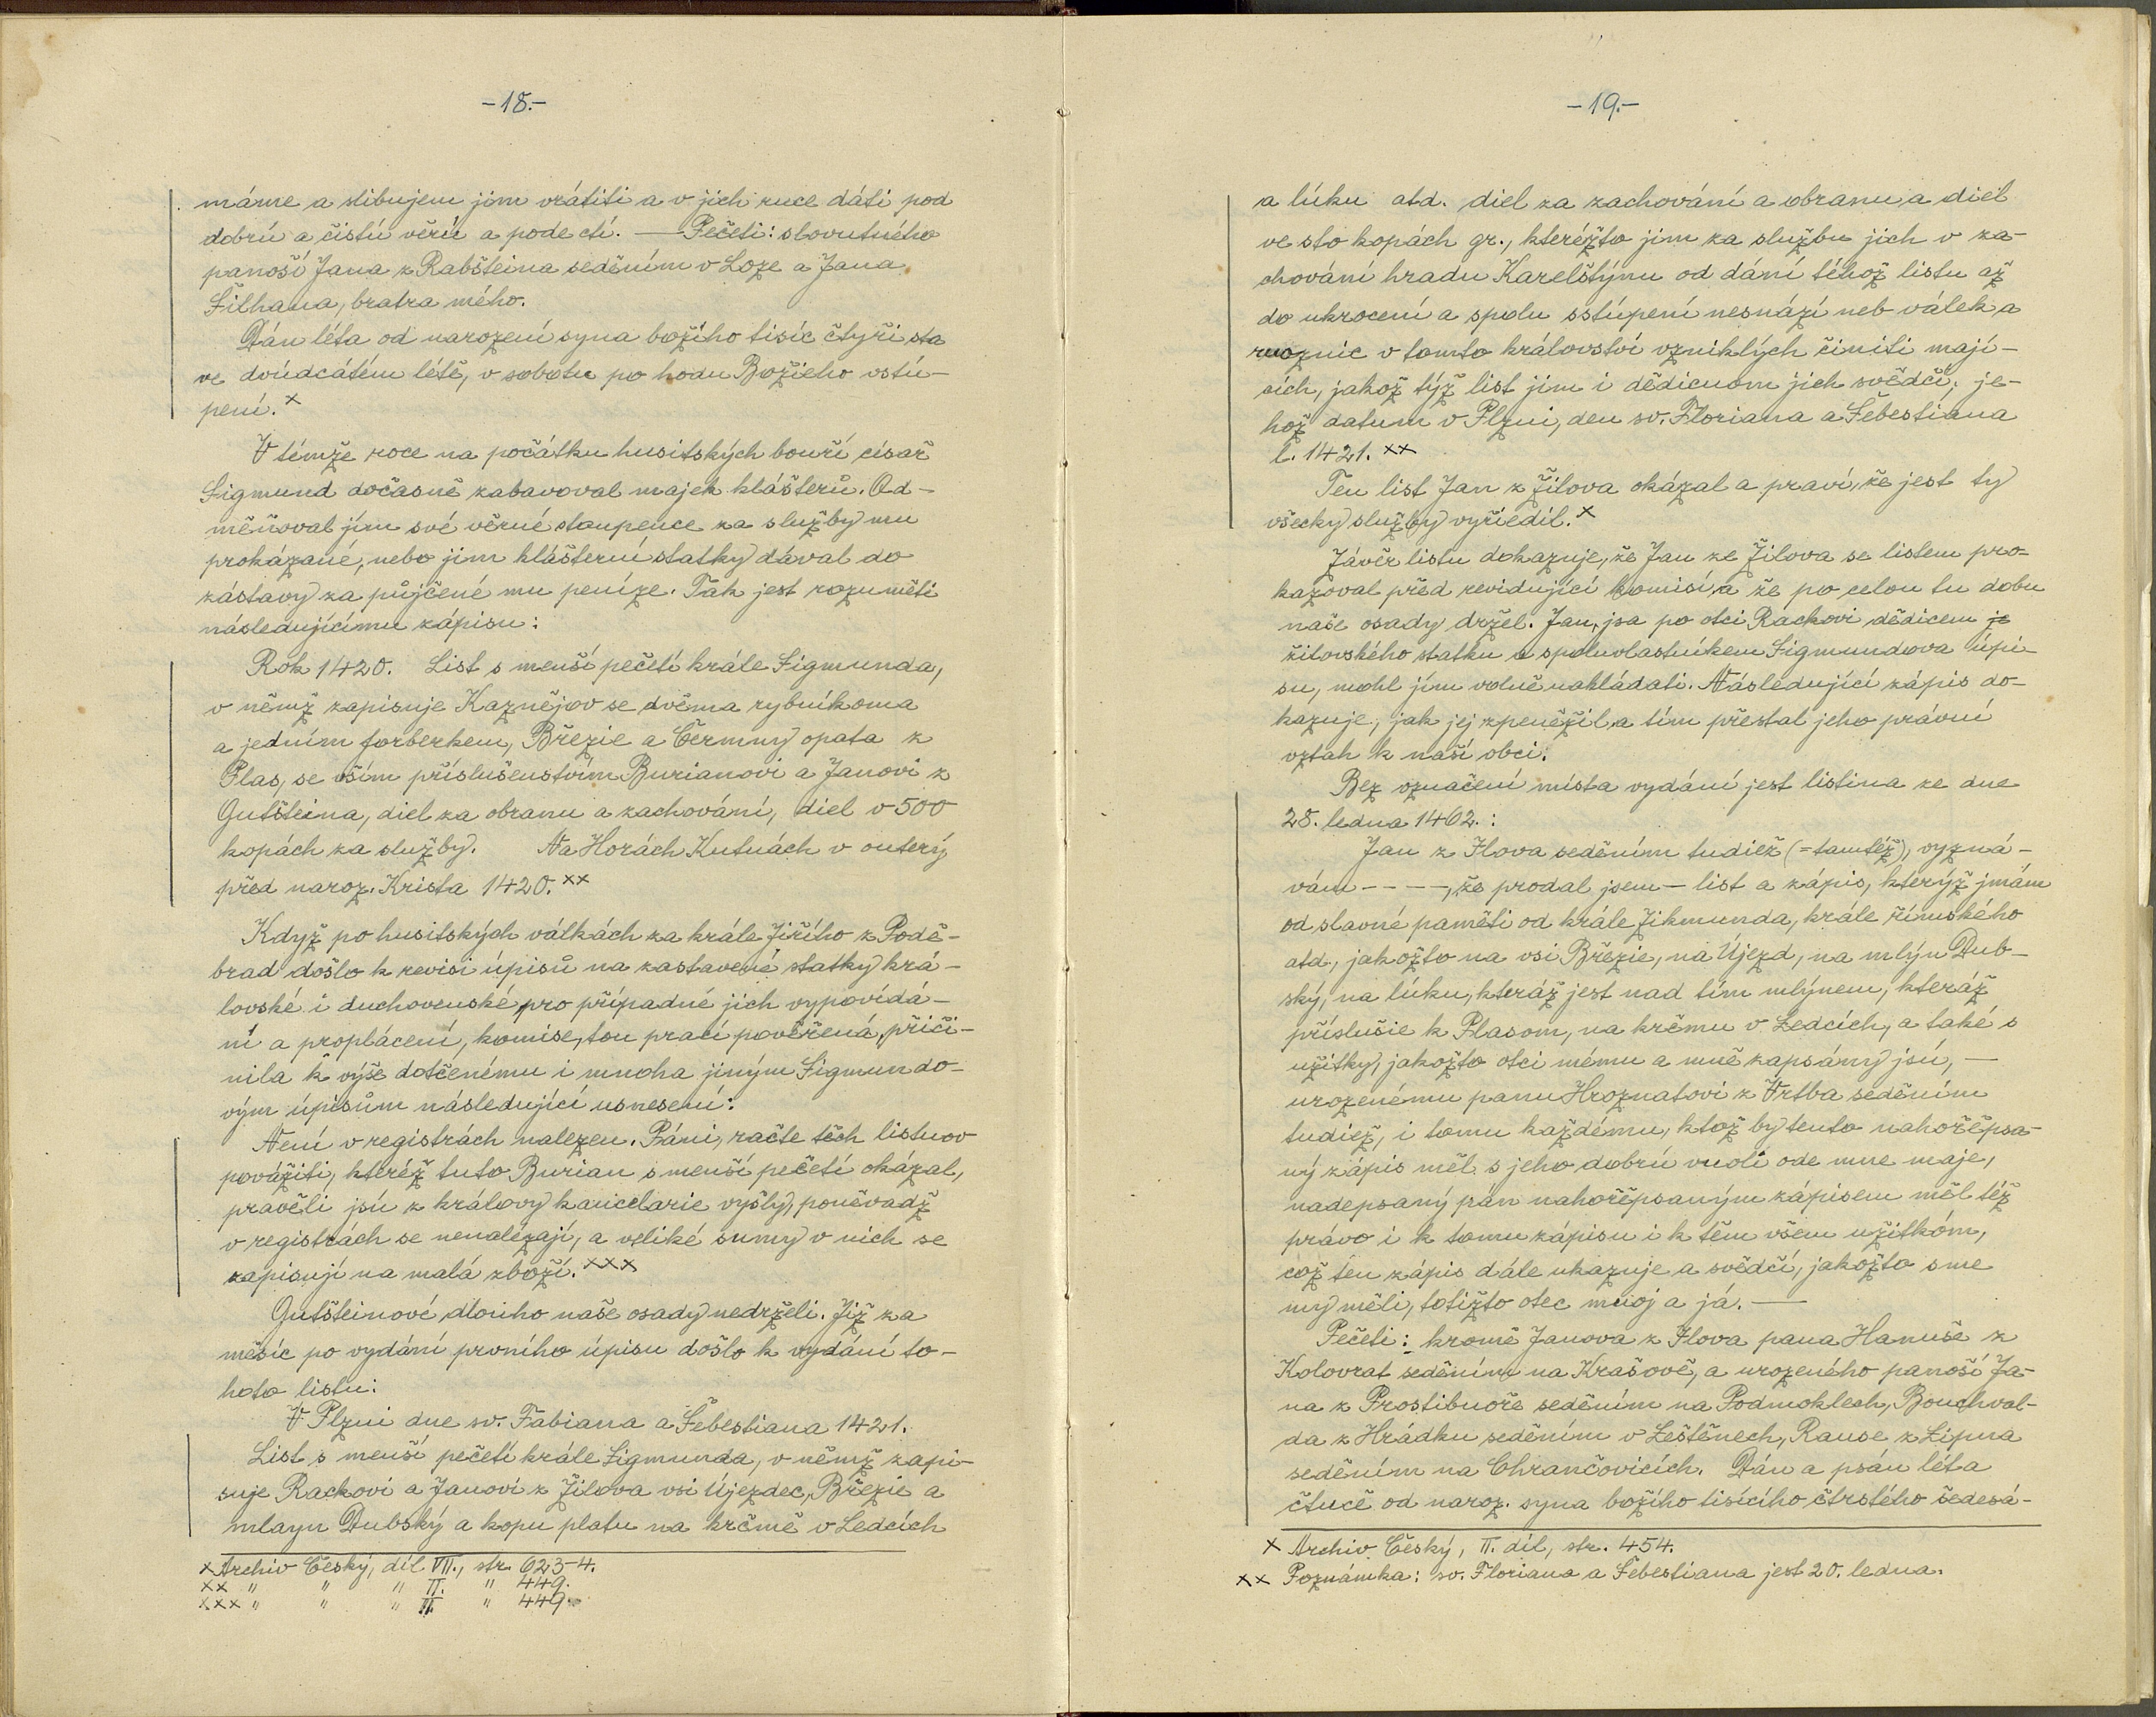 -18.-
máme a slibujem jim vrátiti a v jich ruce dáti pod
dobrú a čistú věrú a pode ctí. — Pečeti: slovutného
panoší Jana z Rabšteina seděním v Loze a Jana
Šilhana, bratra mého.
Dán léta od narození syna božího tisíc čtyři sta
ve dvúdcátém létě, v sobotu po hodu Božieho vstú-
pení. x
V témže roce na počátku husitských bouří císař
Sigmund dočasně zabavoval majek klášterů. Od-
měňoval jím své věrné stoupence za služby mu
prokázané, nebo jim klášterní statky dával do
zástavy za půjčené mu peníze. Tak jest rozuměti
následujícímu zápisu:
Rok 1420. List s menší pečetí krále Sigmunda,
v němž zapisuje Kaznějov se dvěma rybníkoma
a jedním forberkem, Březie a Čermny opata z
Plas, se vším příslušenstvím Burianovi a Janovi z
Gutšteina, diel za obranu a zachování, diel v 500
kopách za služby. Na Horách Kutnách v outerý
před naroz. Krista 1420. xx
Když po husitských válkách za krále Jiřího z Podě-
brad došlo k revisi úpisů na zastavené statky krá-
lovské i duchovenské pro případné jich vypovídá-
ní a proplácení, komise, tou prací pověřená, přiči-
nila k výše dotčenému i mnoha jiným Sigmundo-
vým úpisům následující usnesení:
Není v registrách nalezen. Páni, račte těch listuov
povážiti, kteréž tuto Burian s menší pečetí okázal,
pravěli jsú z královy kancelarie vyšly, poněvadž
v registrách se nenalézají, a veliké sumy v nich se
zapisují na malá zboží. xxx
Gutšteinové dlouho naše osady nedrželi. Již za
měsíc po vydání prvního úpisu došlo k vydání to-
hoto listu:
V Plzni dne sv. Fabiana a Šebestiana 1421.
List s menší pečetí krále Sigmunda, v němž zapi-
suje Rackovi a Janovi z Žilova vsi Újezdec, Březie a
mlayn Dubský a kopu platu na krčmě v Ledcích
x Archiv Český, díl VII., str. 623-4.
xx " " " II. " 449.
xxx " " " II. " 449.
-19.-
a lúku atd. diel za zachování a obranu a diel
ve sto kopách gr., kteréžto jim za službu jich v za-
chování hradu Karelštýnu od dání téhož listu až
do ukrocení a spolu sstúpení nesnází neb válek a
ruoznic v tomto království vzniklých činiti mají-
cích, jakož týž list jim i dědicuom jich svědčí; je-
hož datum v Plzni, den sv. Floriana a Šebestiána
l. 1421. xx
Ten list Jan z Žilova okázal a praví, že jest ty
všecky služby vyřiedil. x
Závěr listu dokazuje, že Jan ze Žilova se listem pro-
kazoval před revidující komisí, a že po celou tu dobu
naše osady držel. Jan, jsa po otci Rackovi dědicem je
žilovského statku a spoluvlastníkem Sigmundova úpi-
su, mohl jím volně nakládati. Následující zápis do-
kazuje, jak jej zpeněžil a tím přestal jeho právní
vztah k naší obci.
Bez označení místa vydání jest listina ze dne
28. ledna 1462. :
Jan z Ilova seděním tudiež (=tamtéž), vyzná-
vám - - - -, že prodal jsem — list a zápis, kterýž jmám
od slavné paměti od krále Zikmunda, krále římského
atd., jakožto na vsi Březie, na Újezd, na mlýn Dub-
ský, na lúku, kteráž jest nad tím mlýnem, kteráž
příslušie k Plasom, na krčmu v Ledcích, a také s
užitky, jakožto otci mému a mně zapsány jsú, —
urozenému panu Hroznatovi z Vrtba seděním
tudiež, i tomu každému, ktož by tento nahořěpsa-
ný zápis měl s jeho dobrú vuolí ode mne maje,
nadepsaný pán nahořěpsaným zápisem měl též
právo i k tomu zápisu i k těm všem užitkóm,
což ten zápis dále ukazuje a svědčí, jakožto sme
my měli, totižto otec muoj a já. —
Pečeti: kromě Janova z Ilova pana Hanuše z
Kolovrat seděním na Krašově, a urozeného panoší Ja-
na z Prostiboře seděním na Podmoklech, Bouchval-
da z Hrádku seděním v Leštěnech, Rause z Lipna
seděním na Chrančovicích. Dán a psán léta
čtucě od naroz. syna božího tisícího čtrstého šedesá-
x Archiv Český, II. díl, str. 454.
xx Poznámka: sv. Floriana a Šebestiana jest 20. ledna.